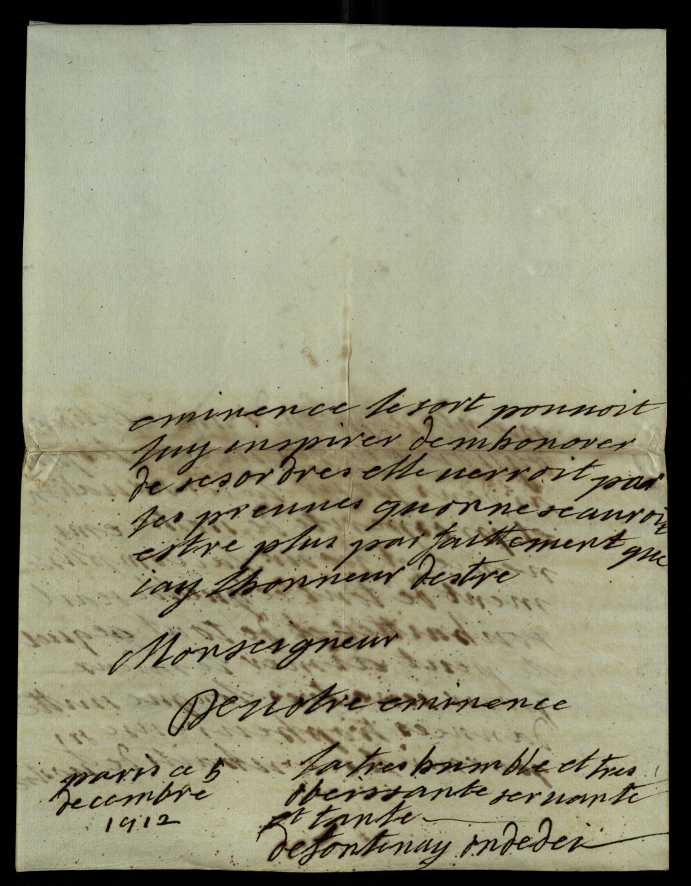 eminence le sort pouuoit
luy inspirer dem honorer
de ses ordres elle uerroit par
les preuues quonne scauroit
estre plus parfaittement que
iay lhonneur destre
Monseigneur
De uotre eminence
paris ce 5
decembre
1712
la tres humble et tres
obeissante seruante
et tante
defontenay ondedei